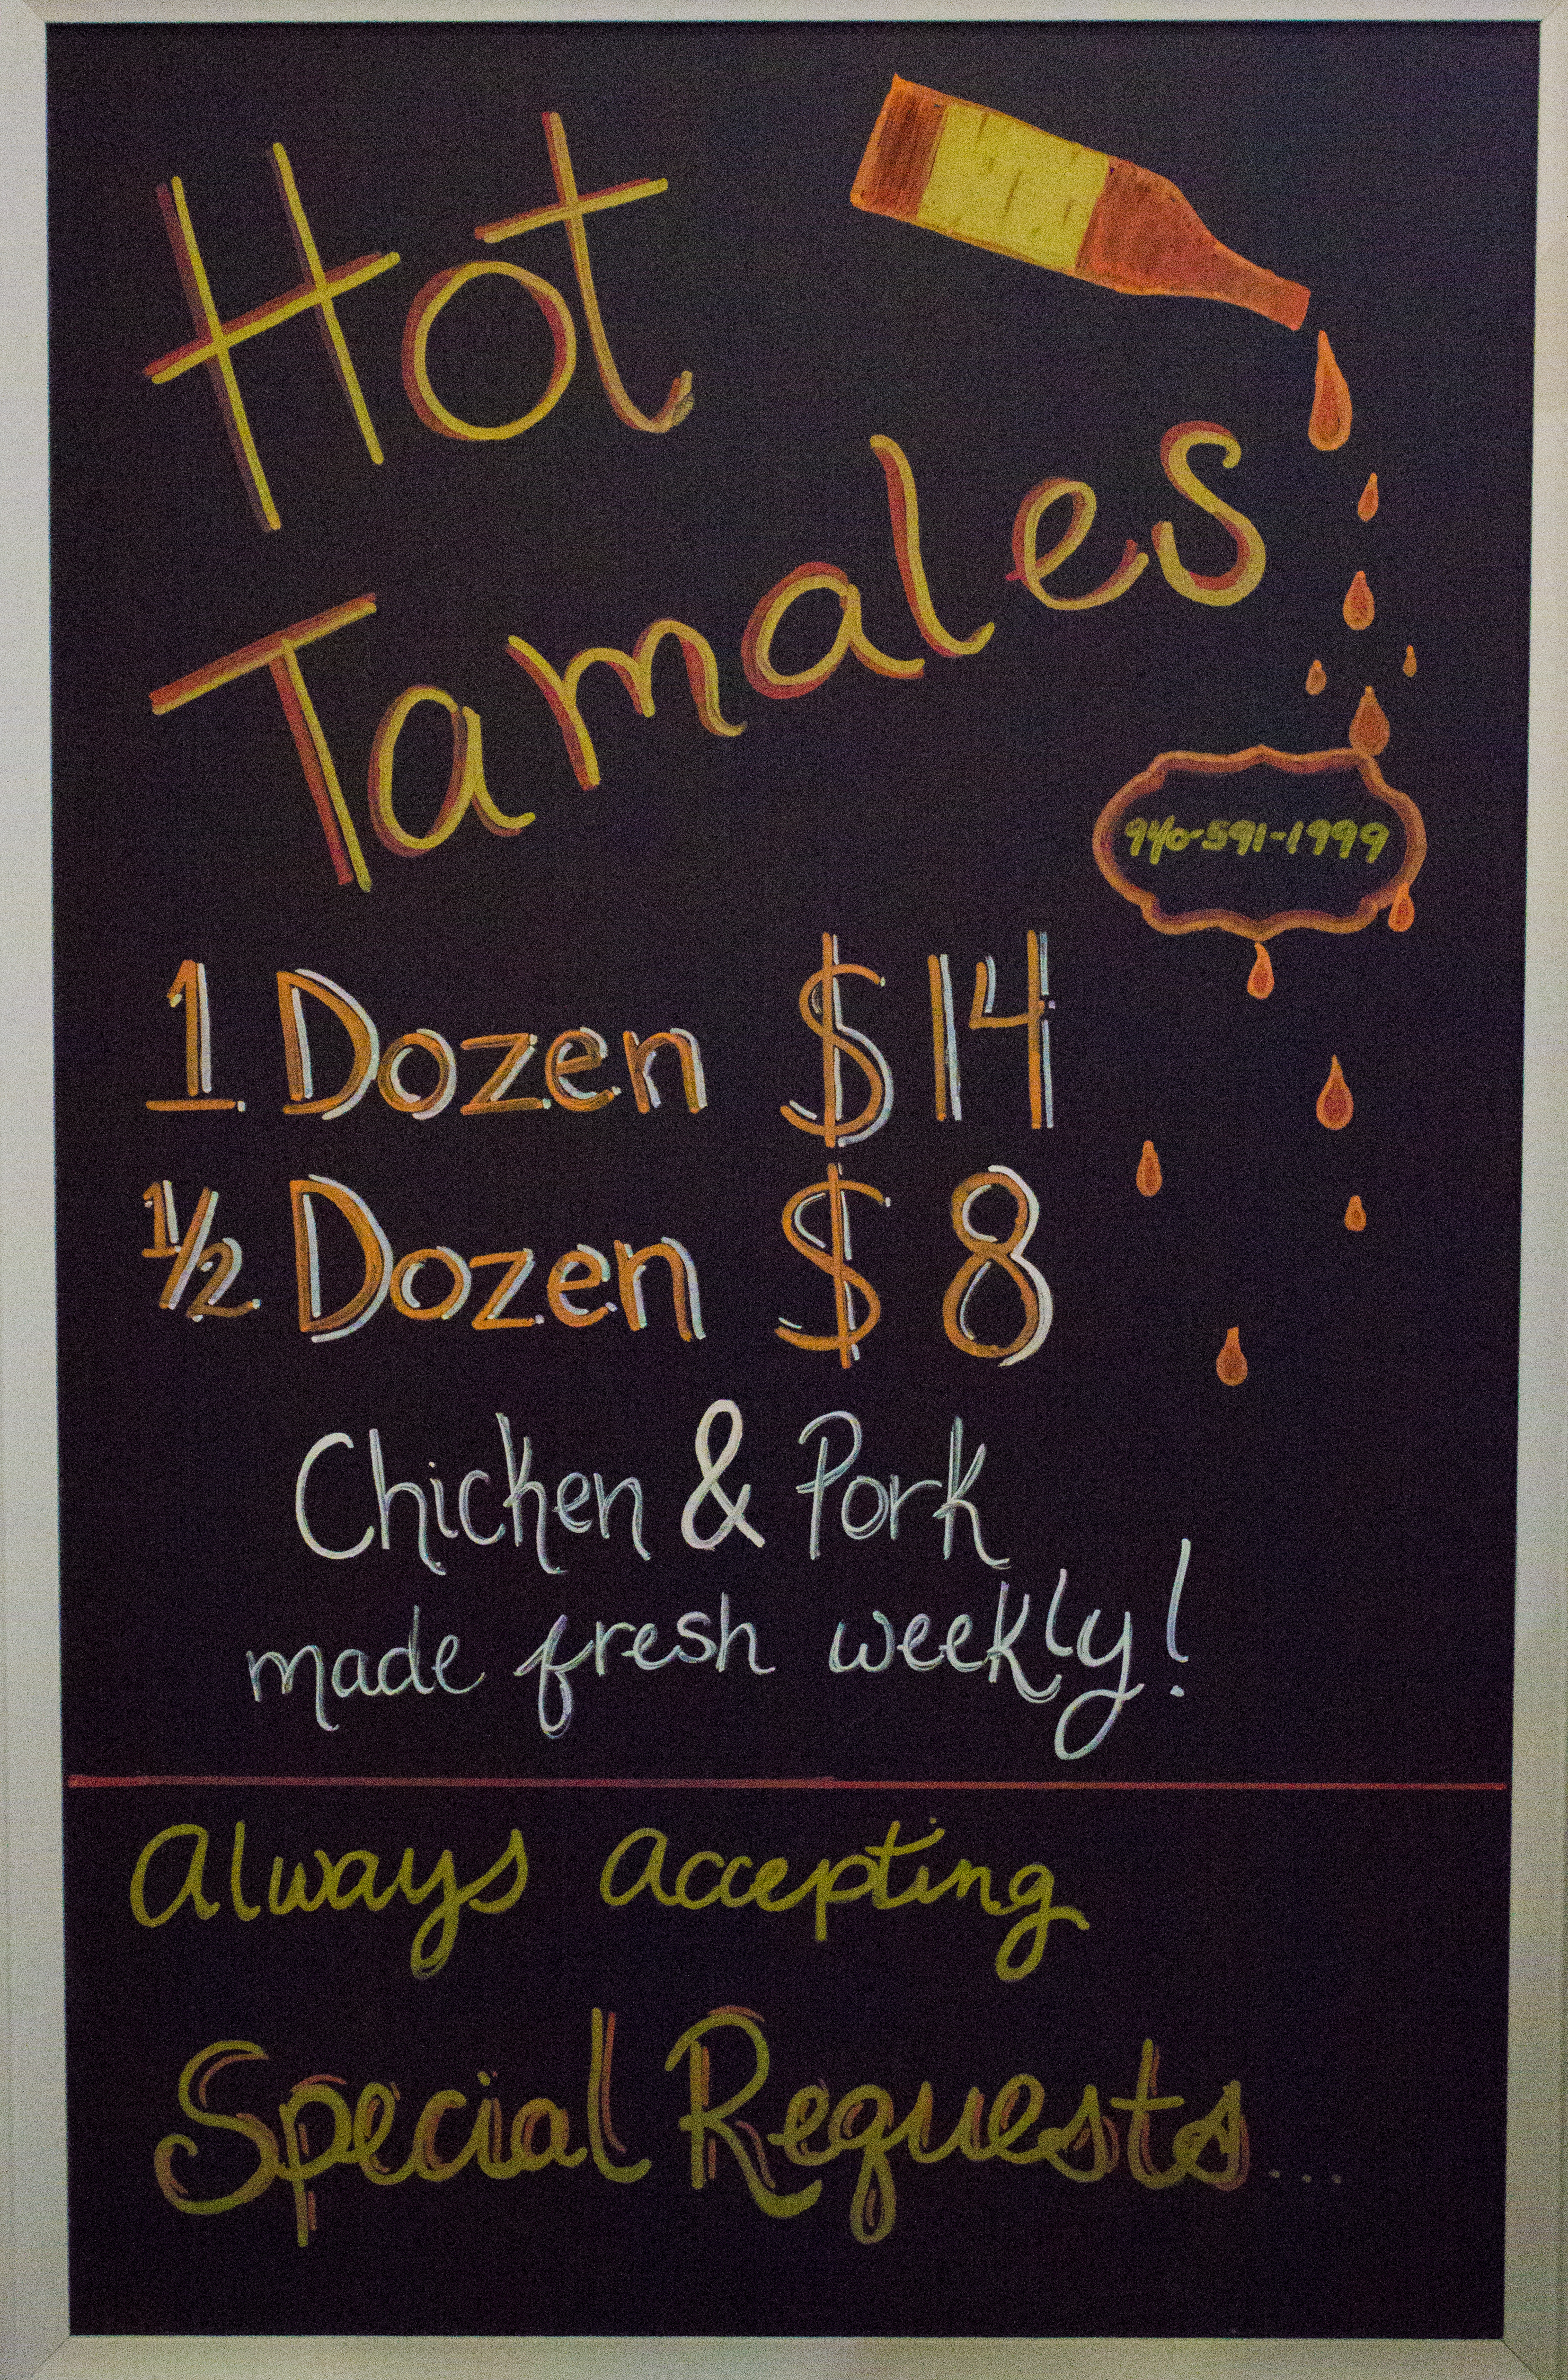 Hot
Tamales
940-591-1999
1 Dozen $14
1/2 Dozen $8
Chicken & Pork
made fresh weekly!
Always Accepting
Special Requests...